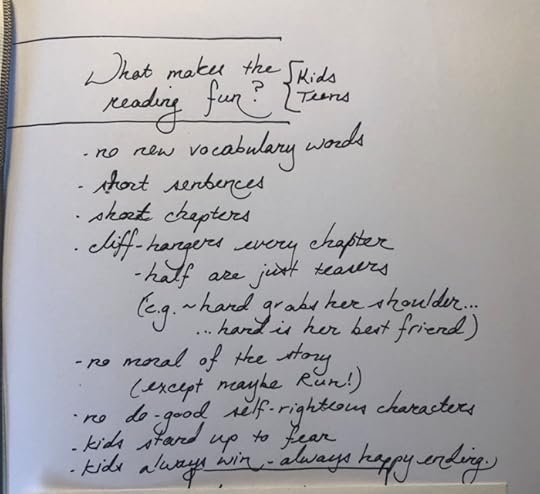 What makes the { Kids
reading fun? { Teens
- no new vocabulary words
- short sentences
- short chapters
- cliff-hangers every chapter
- half are just teasers
(e.g. ~ hand grabs her shoulder...
... hand is her best friend)
- no moral of the story
(except maybe Run!)
- no do-good self-righteous characters
- kids stand up to fear
- kids always win - always happy ending.